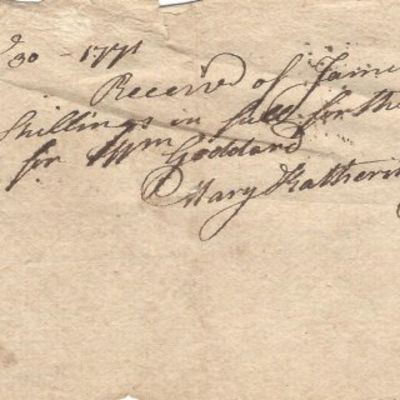 30 - 1771
Received of Jame
Shillings in full for the
for Wm Goddard
Mary Katherin